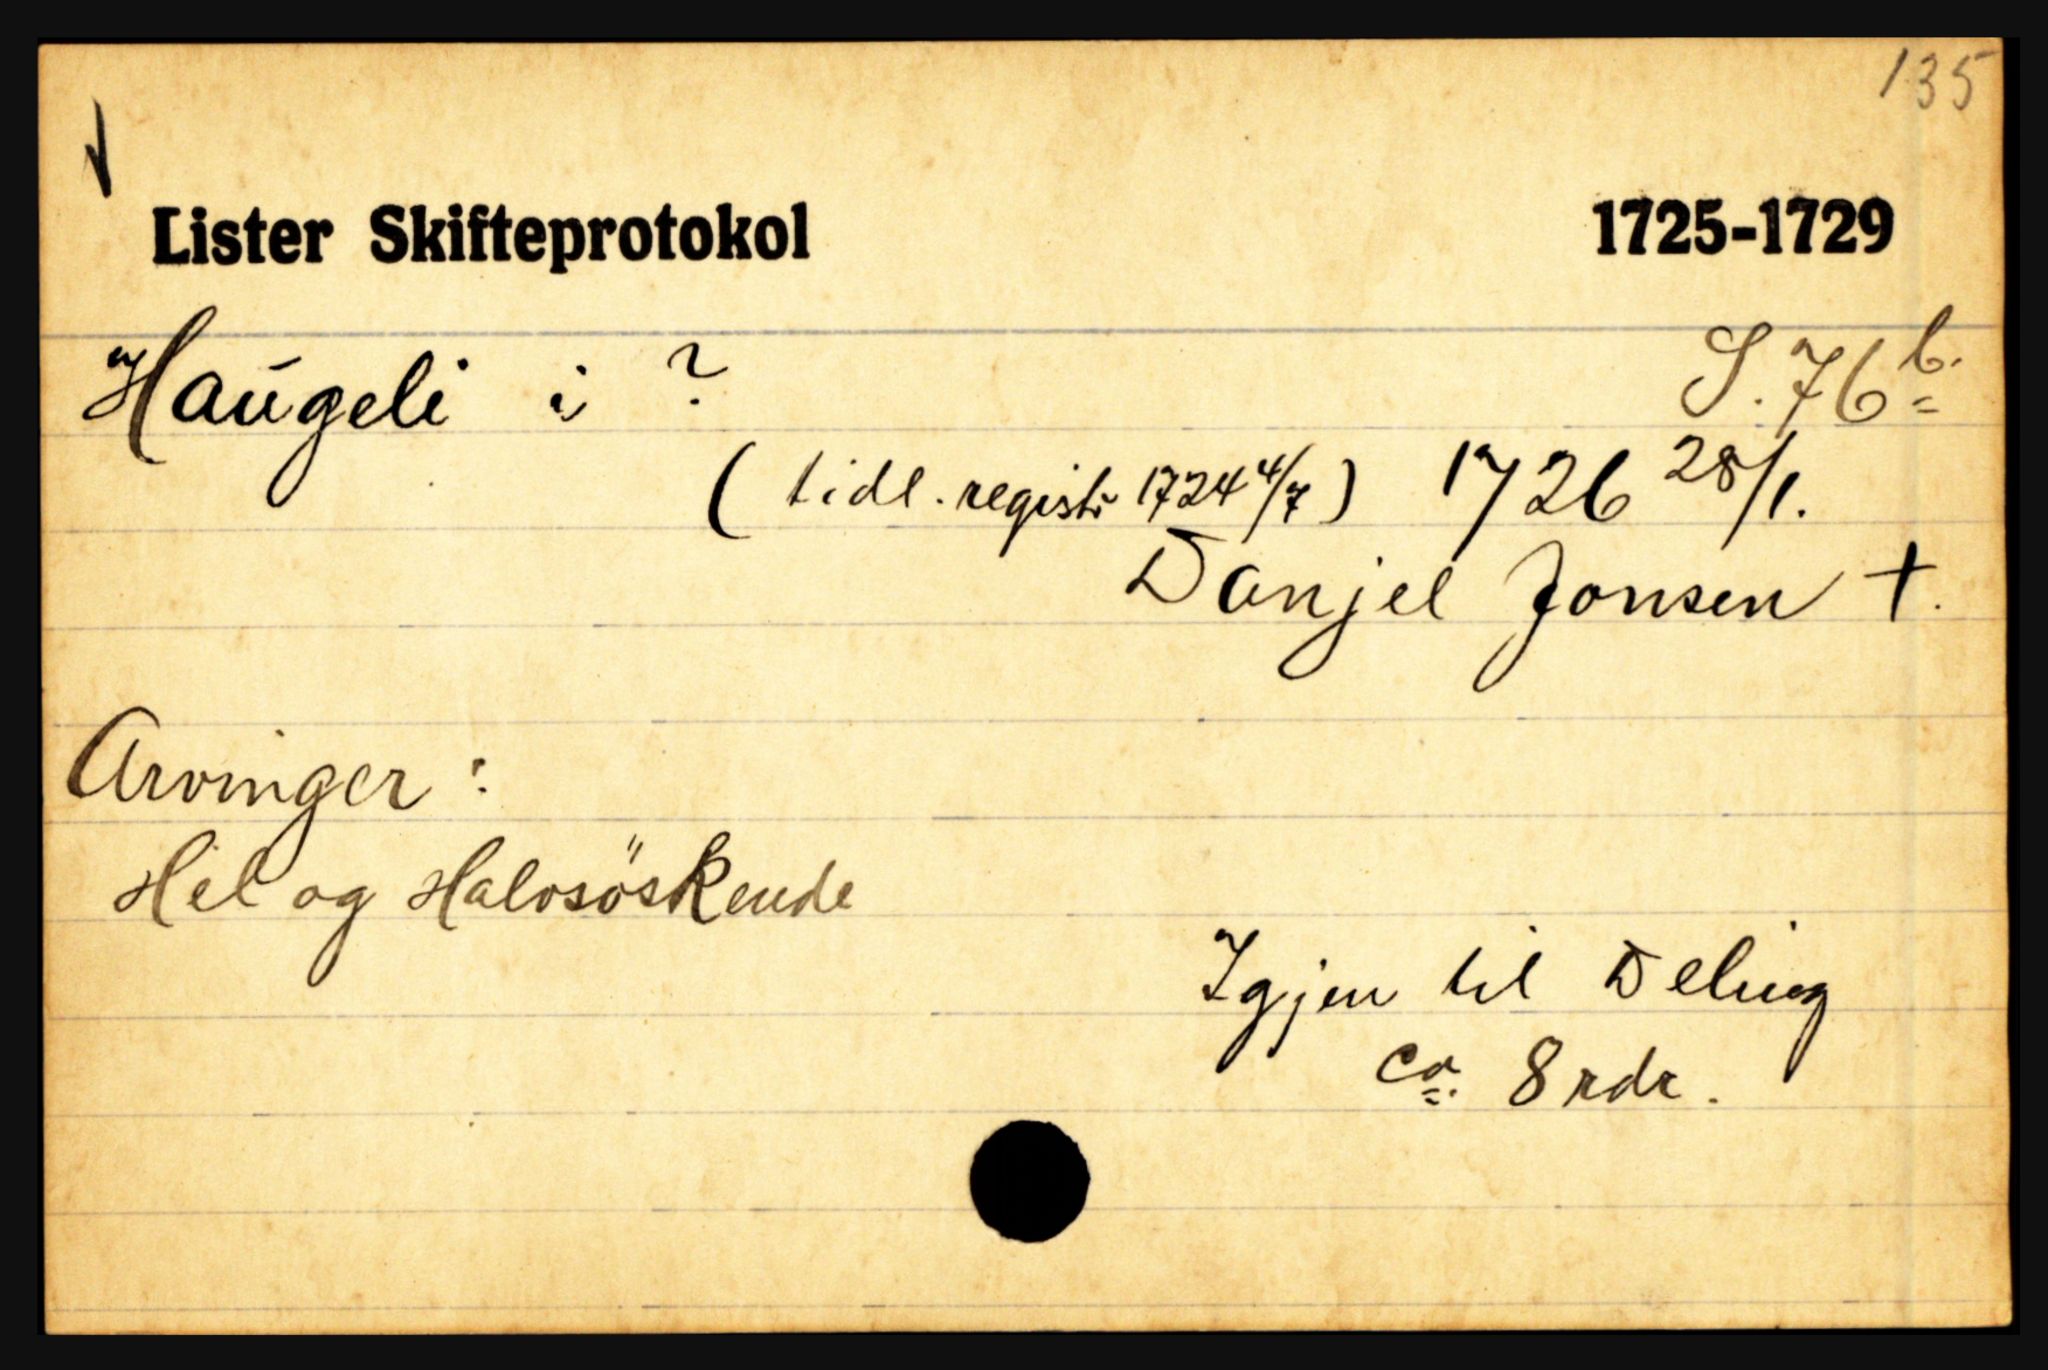 135
Lister Skifteprotokol 1725-1729
Haugeli i ? S. 76 b.
(tidl. registr 1724 4/7) 1726 28/1.
Danjel Jonsen +.
Arvinger:
Hel og Halvsöskende
Igjen til Deling
ca. 8 rdr.